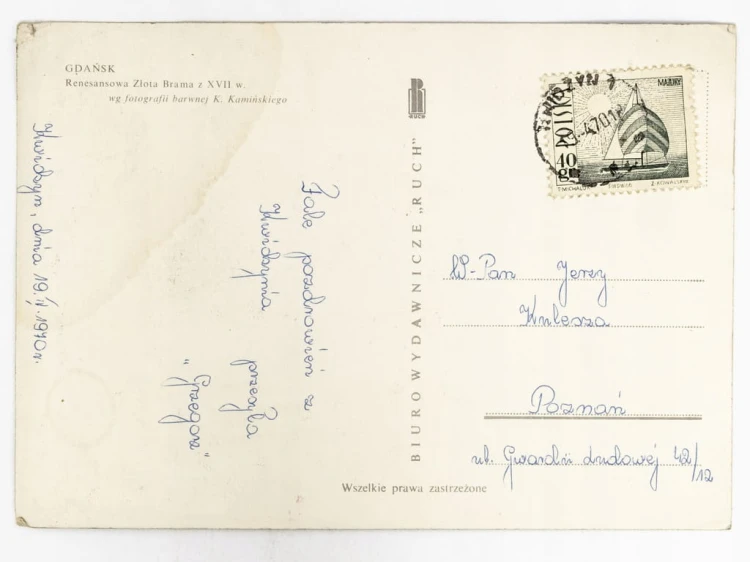 GDAŃSK
Renesansowa Złota Brama z XVII w.
wg fotografii barwnej K. Kamińskiego
Kwidzyn, dnia 19.IV.1970r.
pozdrowień z
Kwidzynia
przesyła
"Grzegorz"
RUCH
BIURO WYDAWNICZE „RUCH"
POLSKA
40
gr
MAZURY
T. MICHALUK
Z. KOWALSKI
KWIDZYN 1
W-Pan Jerzy
Kulesza
Poznań
ul. Gwardii Ludowej 42/12
Wszelkie prawa zastrzeżone